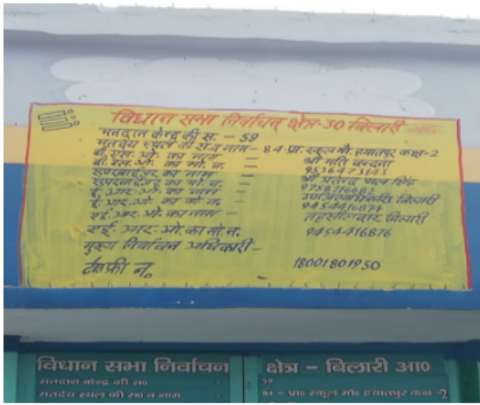 विधान सभा निर्वाचन क्षेत्र-30 बिलारी
मतदान केन्द्र की स. - 59
मतदेय स्थल की स.व नाम - 84 प्रा. स्कूल मौ. हयातपुर कक्ष-2
बी.एल.ओ. का नाम - श्री मति वन्दना
बी.एल.ओ. का मो.न. - 9536473143
सुपरवाईजर का नाम - पाल सिंह
सुपरवाईजर का मो. न. - 9758716682
ई.आर.ओ. का नाम - उपजिलाधिकारी बिलारी
ई.आर.ओ. का मो. न. - 9454416874
एई.आर.ओ. का नाम - तहसीलदार बिलारी
एई.आर.ओ. का मो. न. 9454416876
मुख्य निर्वाचन अधिकारी -
टोलफ्री न. 18001801950
विधान सभा निर्वाचन क्षेत्र - बिलारी
मतदान केन्द्र की स० - 59
मतदेय स्थल की स० व नाम - 84 - प्रा० स्कूल मौ० हयातपुर कक्ष-2